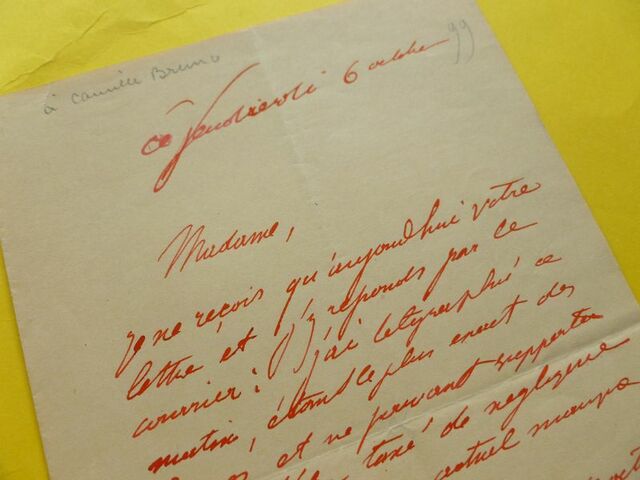 à Camille Bruno
ce Vendredi 6 octobre 99
Madame,
Je ne reçois qu'aujourd'hui votre
lettre, et j'y réponds par ce
courrier: j'ai télégraphié ce
matin, étant le plus exact des
et ne pouvant supporter
taxé de négligence
actuel manque